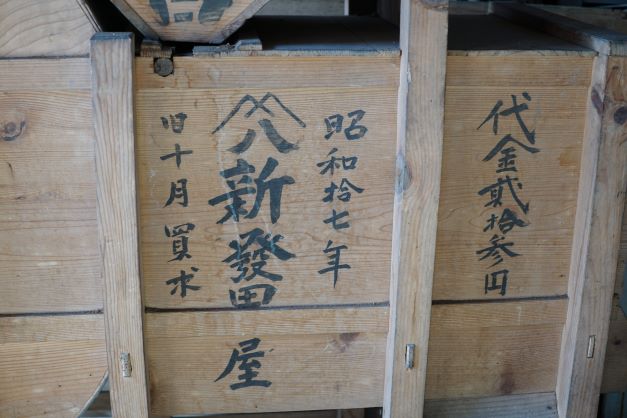 代金貳拾参円
昭和拾七年
八新發田屋
旧十月買求